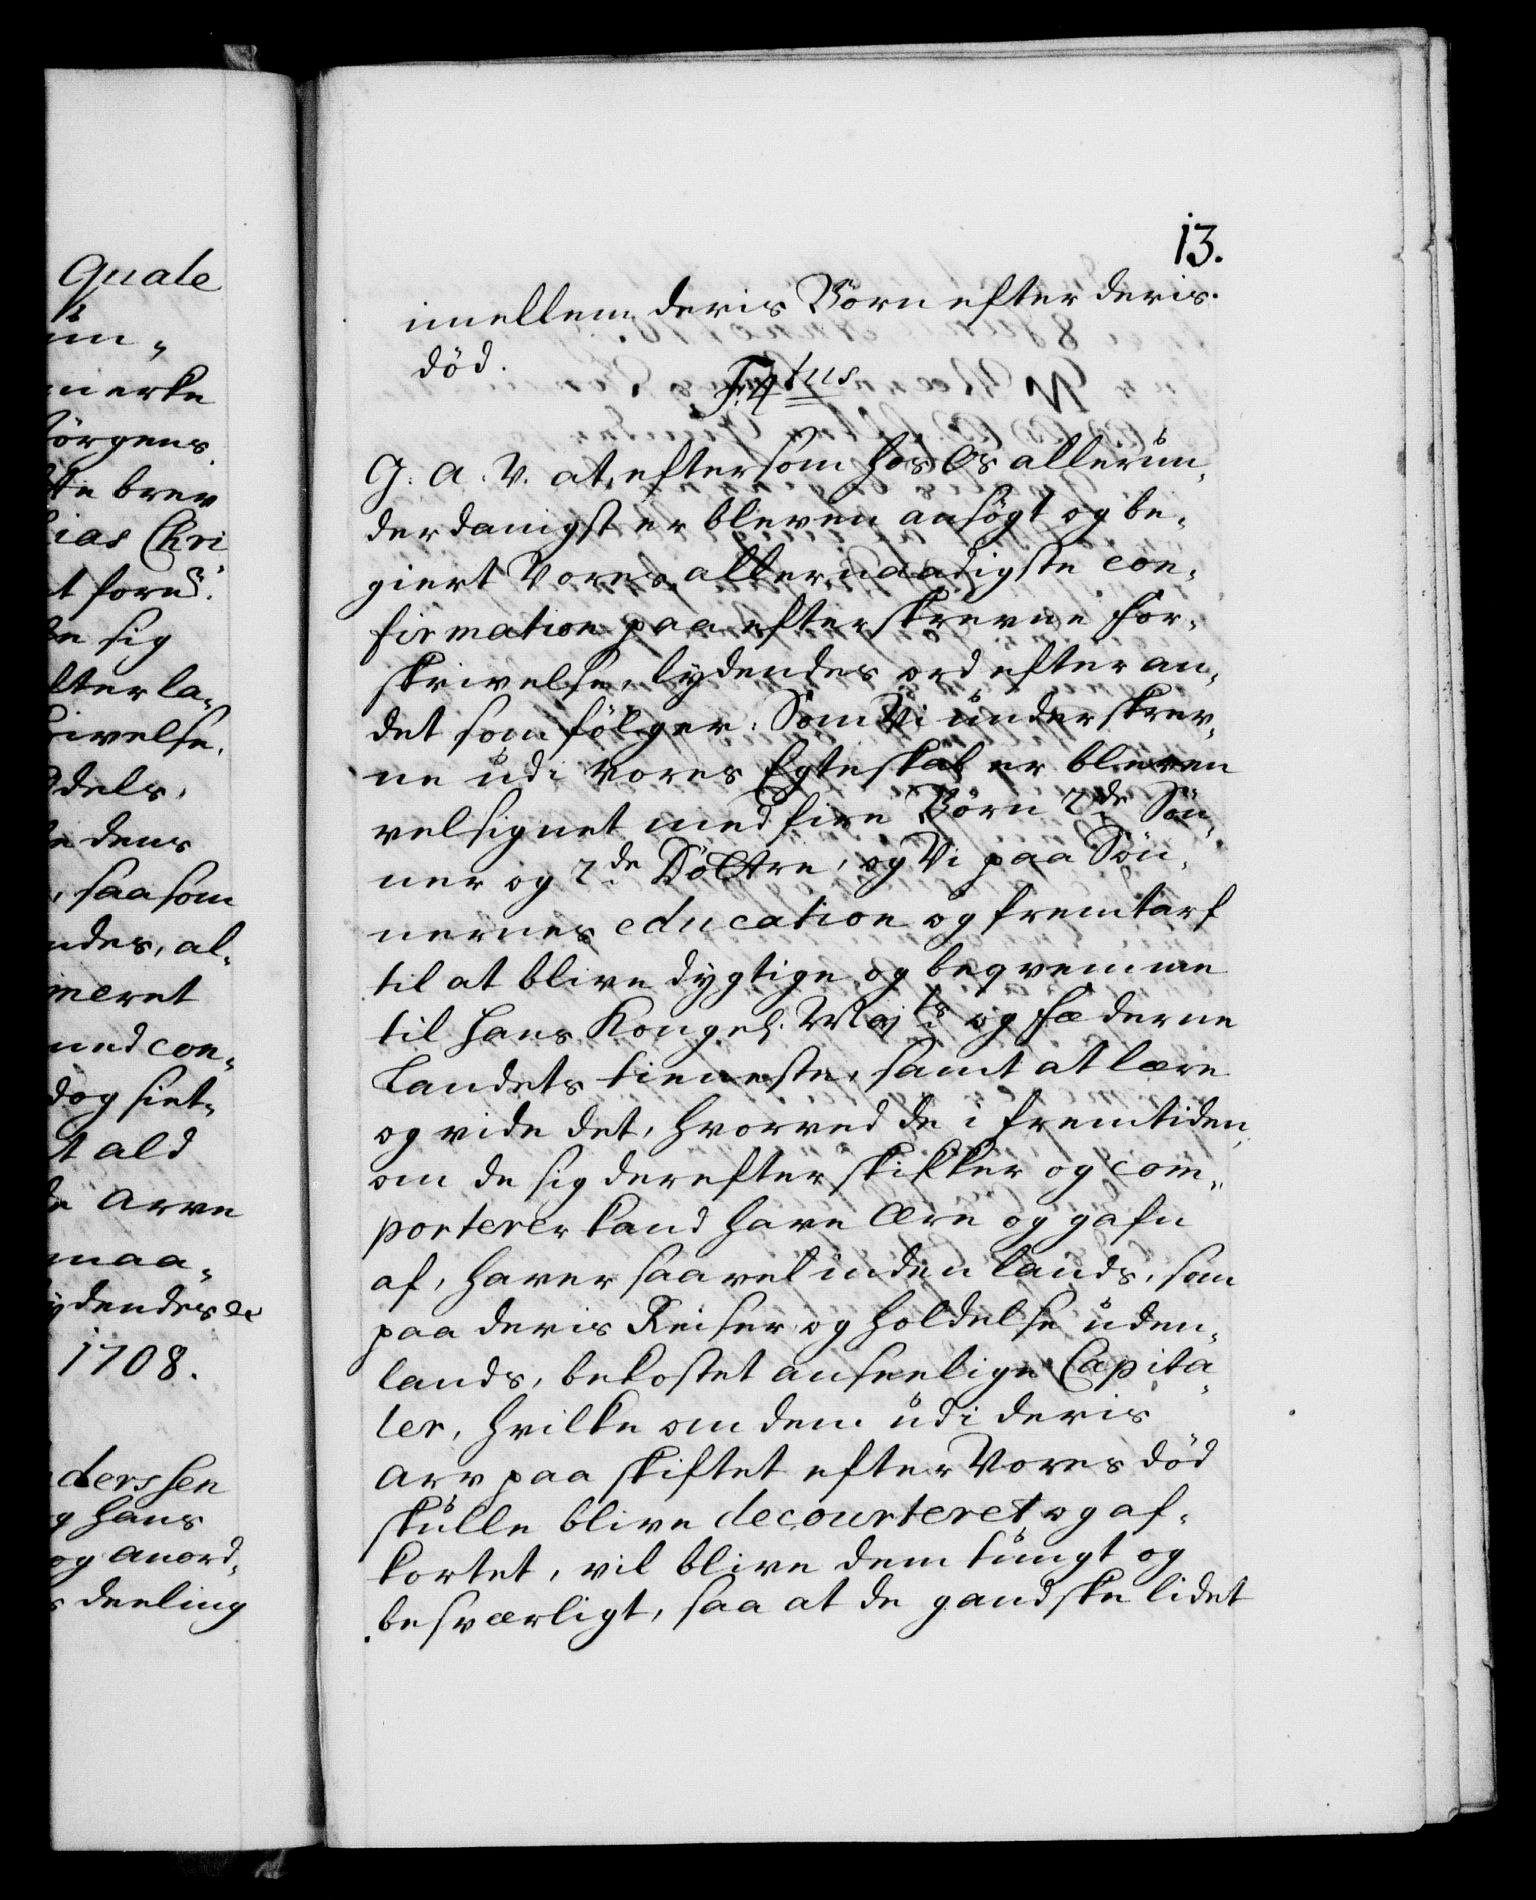 Quale
un-
merke
Jörgens
tte brev
ias Chri
t forn
de sig
lter la-
rivelse.
Odels,
e dens
, saasom
ndes, al-
meret
med con-
dog siet-
t ald
de arve
maa-
ydendes etc
1708.
derssen
g Hans
og anord-
s deeling
13.
imellem deris Börn efter deris
död.
F. 4tus
G. A. V. at, eftersom hos Os allerun-
derdanigst er bleven ansögt og be-
giert Vores allernaadigste con-
firmation paa efterskrevne for-
skrivelse, lydendes ord efter an-
det som fölger: Som Vi underskrev-
ne udi vores Egteskab er bleven
velsignet med fire Börn 2de Sön-
ner og 2de Döttre, og Vi paa Sön-
nernes education og fremtarf
til at blive dygtige og beqvemme
til Hans Kongel. Majts og Fæderne
Landets tieneste, samt at lære
og vide det, hvorved de i fremtiden,
om de sig derefter skikker og com-
porterer kand have Ære og gafn
af, haver saavel inden lands, som
paa deris Reiser og holdelse uden-
lands, bekostet anseelige Capita-
ler, hvilke om dem udi deris
arv paa skiftet efter Vores död
skulle blive decourteret og af-
kortet, vil blive dem tungt og
besværligt, saa at de gandske lidet